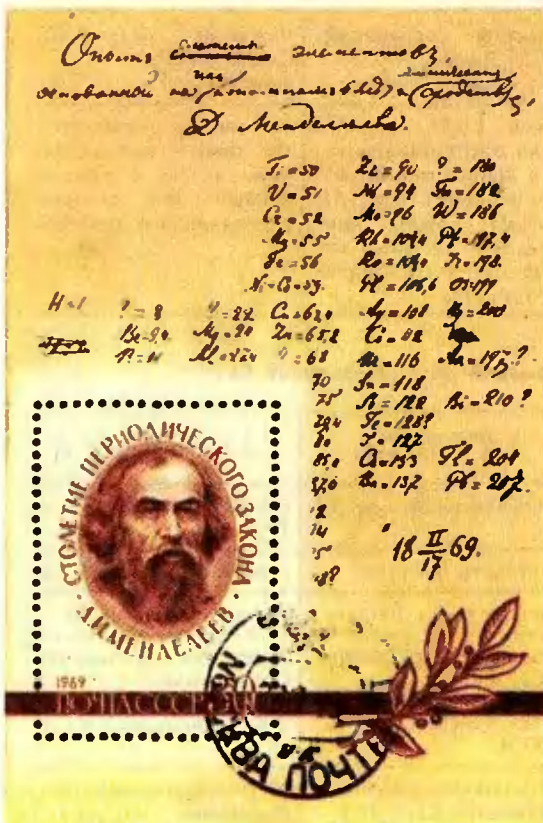 Опытъ системы элементовъ,
основанной на ихъ атомномъ вѣсѣ и химическомъ сродствѣ,
Д Менделѣева.
Ti=50 Zr=90 ?=180
V=51 Nb=94 Ta=182
Cr=52 Mo=96 W=186
Mn=55 Rh=104,4 Pt=197,4
Fe=56 Ru=104,4 Ir=198.
Ni=Co=59. Pl=106,6 Os=199
H=1 ?=8 ?=22 Cu=63,4 Ag=108 Hg=200
Be=9,4 Mg=24 Zn=65,2 Cd=112
B=11 Al=27,4 ?=68 Ur=116 Au=197?
70 Sn=118
75 Sb=122 Bi=210?
79,4 Te=128?
80 J=127
85,4 Cs=133 Tl=204
87,6 Ba=137 Pb=207.
18 II/17 69.
СТОЛЕТИЕ ПЕРИОДИЧЕСКОГО ЗАКОНА
· Д.И.МЕНДЕЛЕЕВ ·
1969
ПОЧТА СССР
МОСКВА ПОЧТА